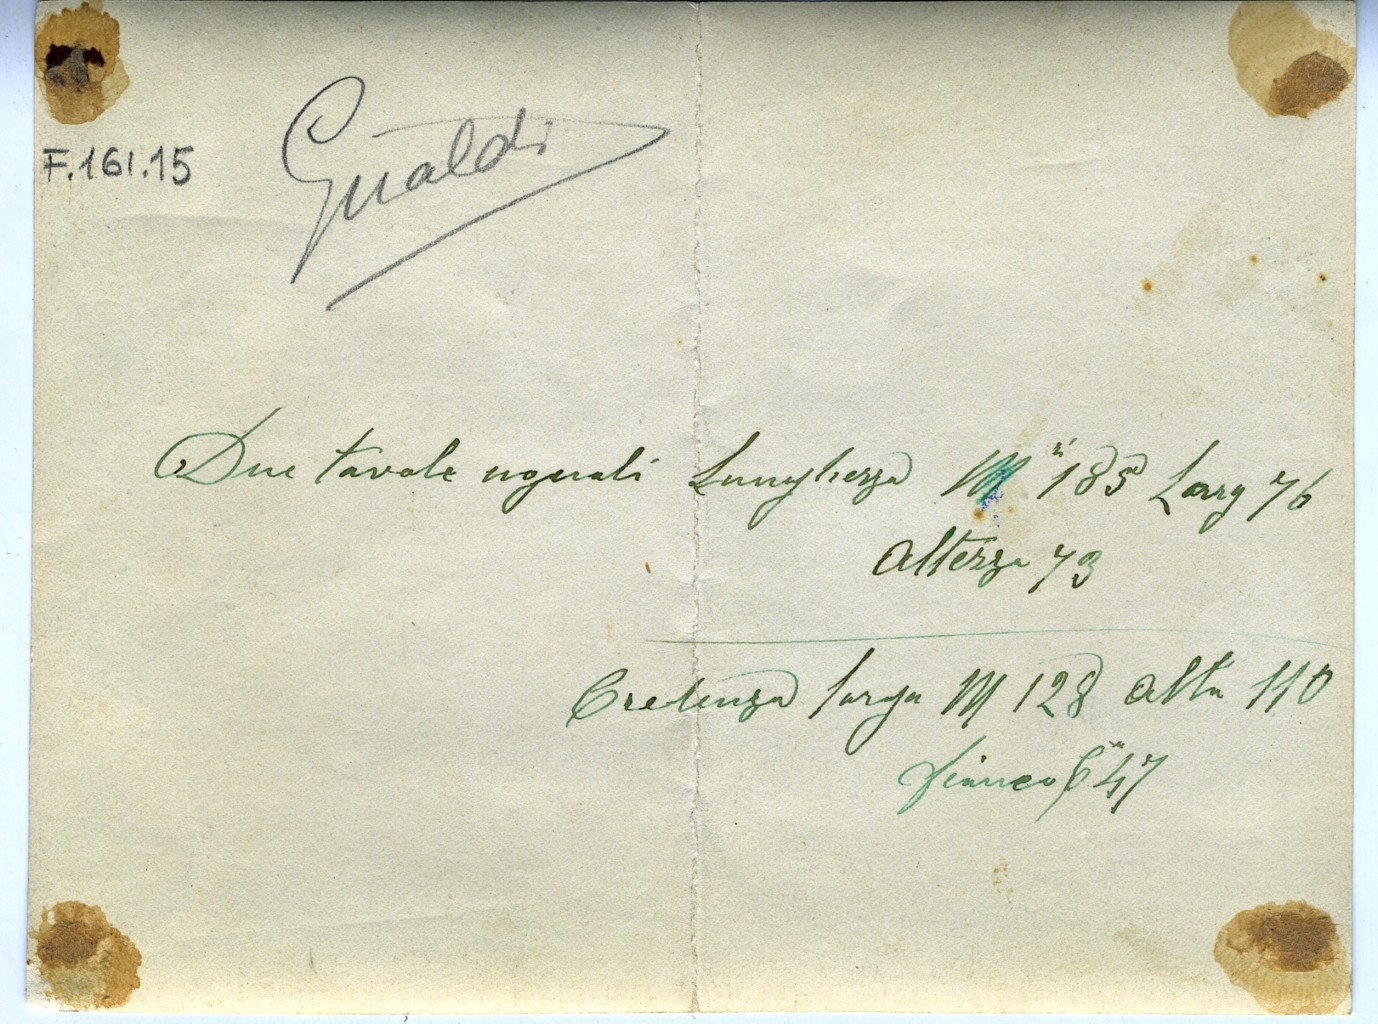 F.161.15
Gualdi
Due tavole uguali Lunghezza M 185 Larg 76
Altezza 73
Credenza larga M 128 alta 110
fianco 47